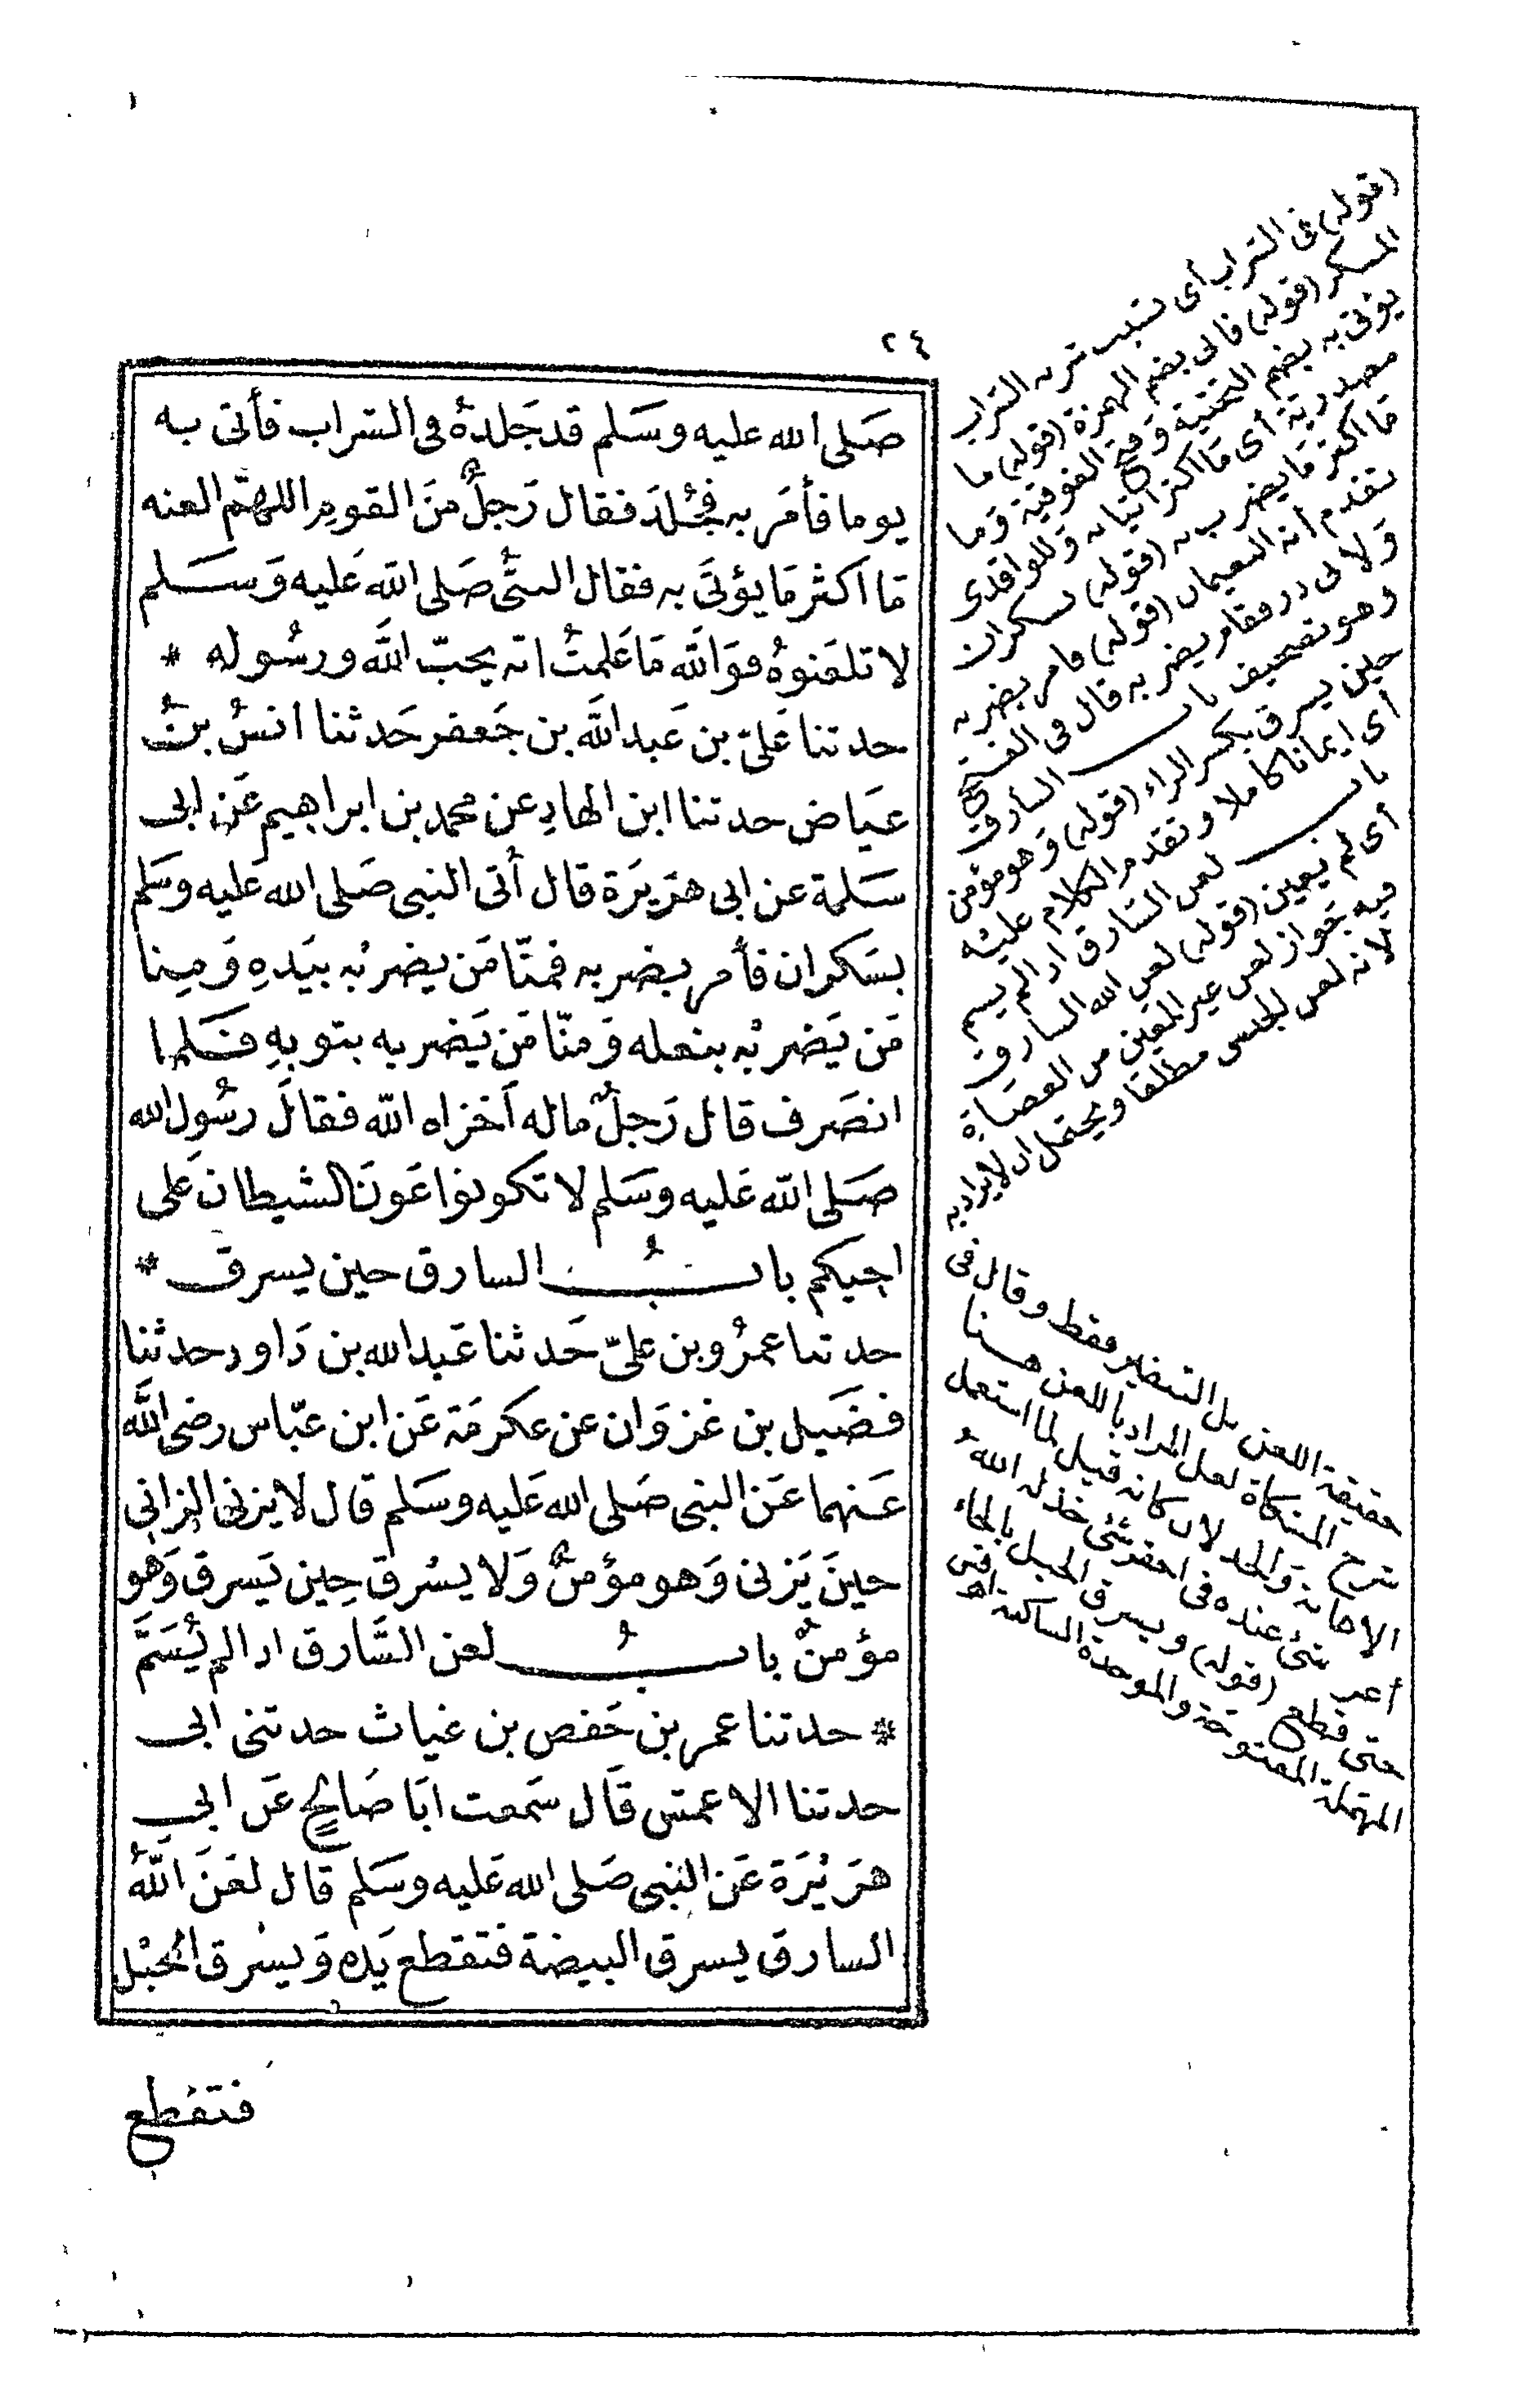 ٢٤
صَلى الله عليه وسَلم قد جَلدهُ فى الشراب فأتى به
يوما فأمَر به فجُلدَ فقال رَجلٌ منَ القومِ اللهمّ العنه
مَا اكثر مَا يؤتَى به فقال النبىُّ صَلى الله عَليه وَسَلم
لا تلعَنوهُ فوَالله مَا عَلمتُ انه يحبّ الله ورسُوله *
حدثنا عَلىّ بن عَبد الله بن جَعفر حَدثنا انسُ بنُ
عيَاض حدثنا ابن الهادِ عن محمد بن ابراهيم عَن ابى
سَلمة عن ابى هرَيرَة قال أُتى النبى صَلى الله عليه وسَلم
بسَكران فأمر بضربه فمنّا مَن يضربُه بيَدهِ وَمِنا
مَن يَضربُه بنعله وَمنّا مَن يَضربه بثوبهِ فَلما
انصَرف قال رَجلٌ ماله اَخزاه الله فقالَ رسُول الله
صَلى الله عَليه وسَلم لا تكونوا عَونَ الشيطان عَلى
اخيكم بابُ السارق حين يسرق *
حدثنا عمرُو بن علىّ حَدثنا عَبد الله بن دَاود حدثنا
فضَيل بن غزوَان عن عكرمَة عَن ابن عبّاس رضى الله
عَنهما عَن النبى صَلى الله عَليه وسَلم قال لا يزنى الزانى
حينَ يَزنى وَهو مؤمنٌ وَلا يسْرق حِين يَسرق وَهو
مؤمنٌ بابُ لعن السَّارق اذا لم يُسَمَّ
* حدثنا عمر بن حَفص بن غياث حدثنى ابى
حدثنا الاعمش قَال سَمعت ابَا صَالحٍ عَن ابى
هرَيْرَة عَن النبى صَلى الله عَليه وسَلم قال لعَنَ اللهُ
السارق يسرق البيضة فتقطع يَده وَيسْرق الحَبْل
فتقطع
(قوله) فى الشراب أى بسبب شربه الشراب
المسكر (قوله) فاتى بضم الهمزة (قوله) ما
يؤتى به بضم التحتية وفتح الفوقية وَما
مصدرية أى مَا اكثر اتيانه وَللواقدى
مَا اكثر مَا يضرب به (قوله) بسكران
تقدم أنه النعيمان (قوله) فامر بضربه
وَلابى ذر فقام يضربه قال فى الفتح
وهو تصحيف باب السارق
حين يسرق بكسر الراء (قوله) وَهو مؤمن
أى ايمانا كاملا وتقدم الكلام عليه
باب لعن السَارق اذا لم يسم
أى لم يعين (قوله) لعن الله السارق
فيه جَواز لعن غير المعَين من العصَاة
لانه لعن للجنس مطلقا ويحتمل ان لا يراد به
حقيقة اللعن بل التنفير فقط وقال فى
شرح المشكاة لعل المراد باللعن هنا
الاهانة والخذلان كانه قيل لما استعمل
أعز شئ عنده فى احقر شئ خذله اللهُ
حتى قطع (قوله) ويسرق الحبل بالحاء
المهملة المفتوحة والموحدة الساكنة